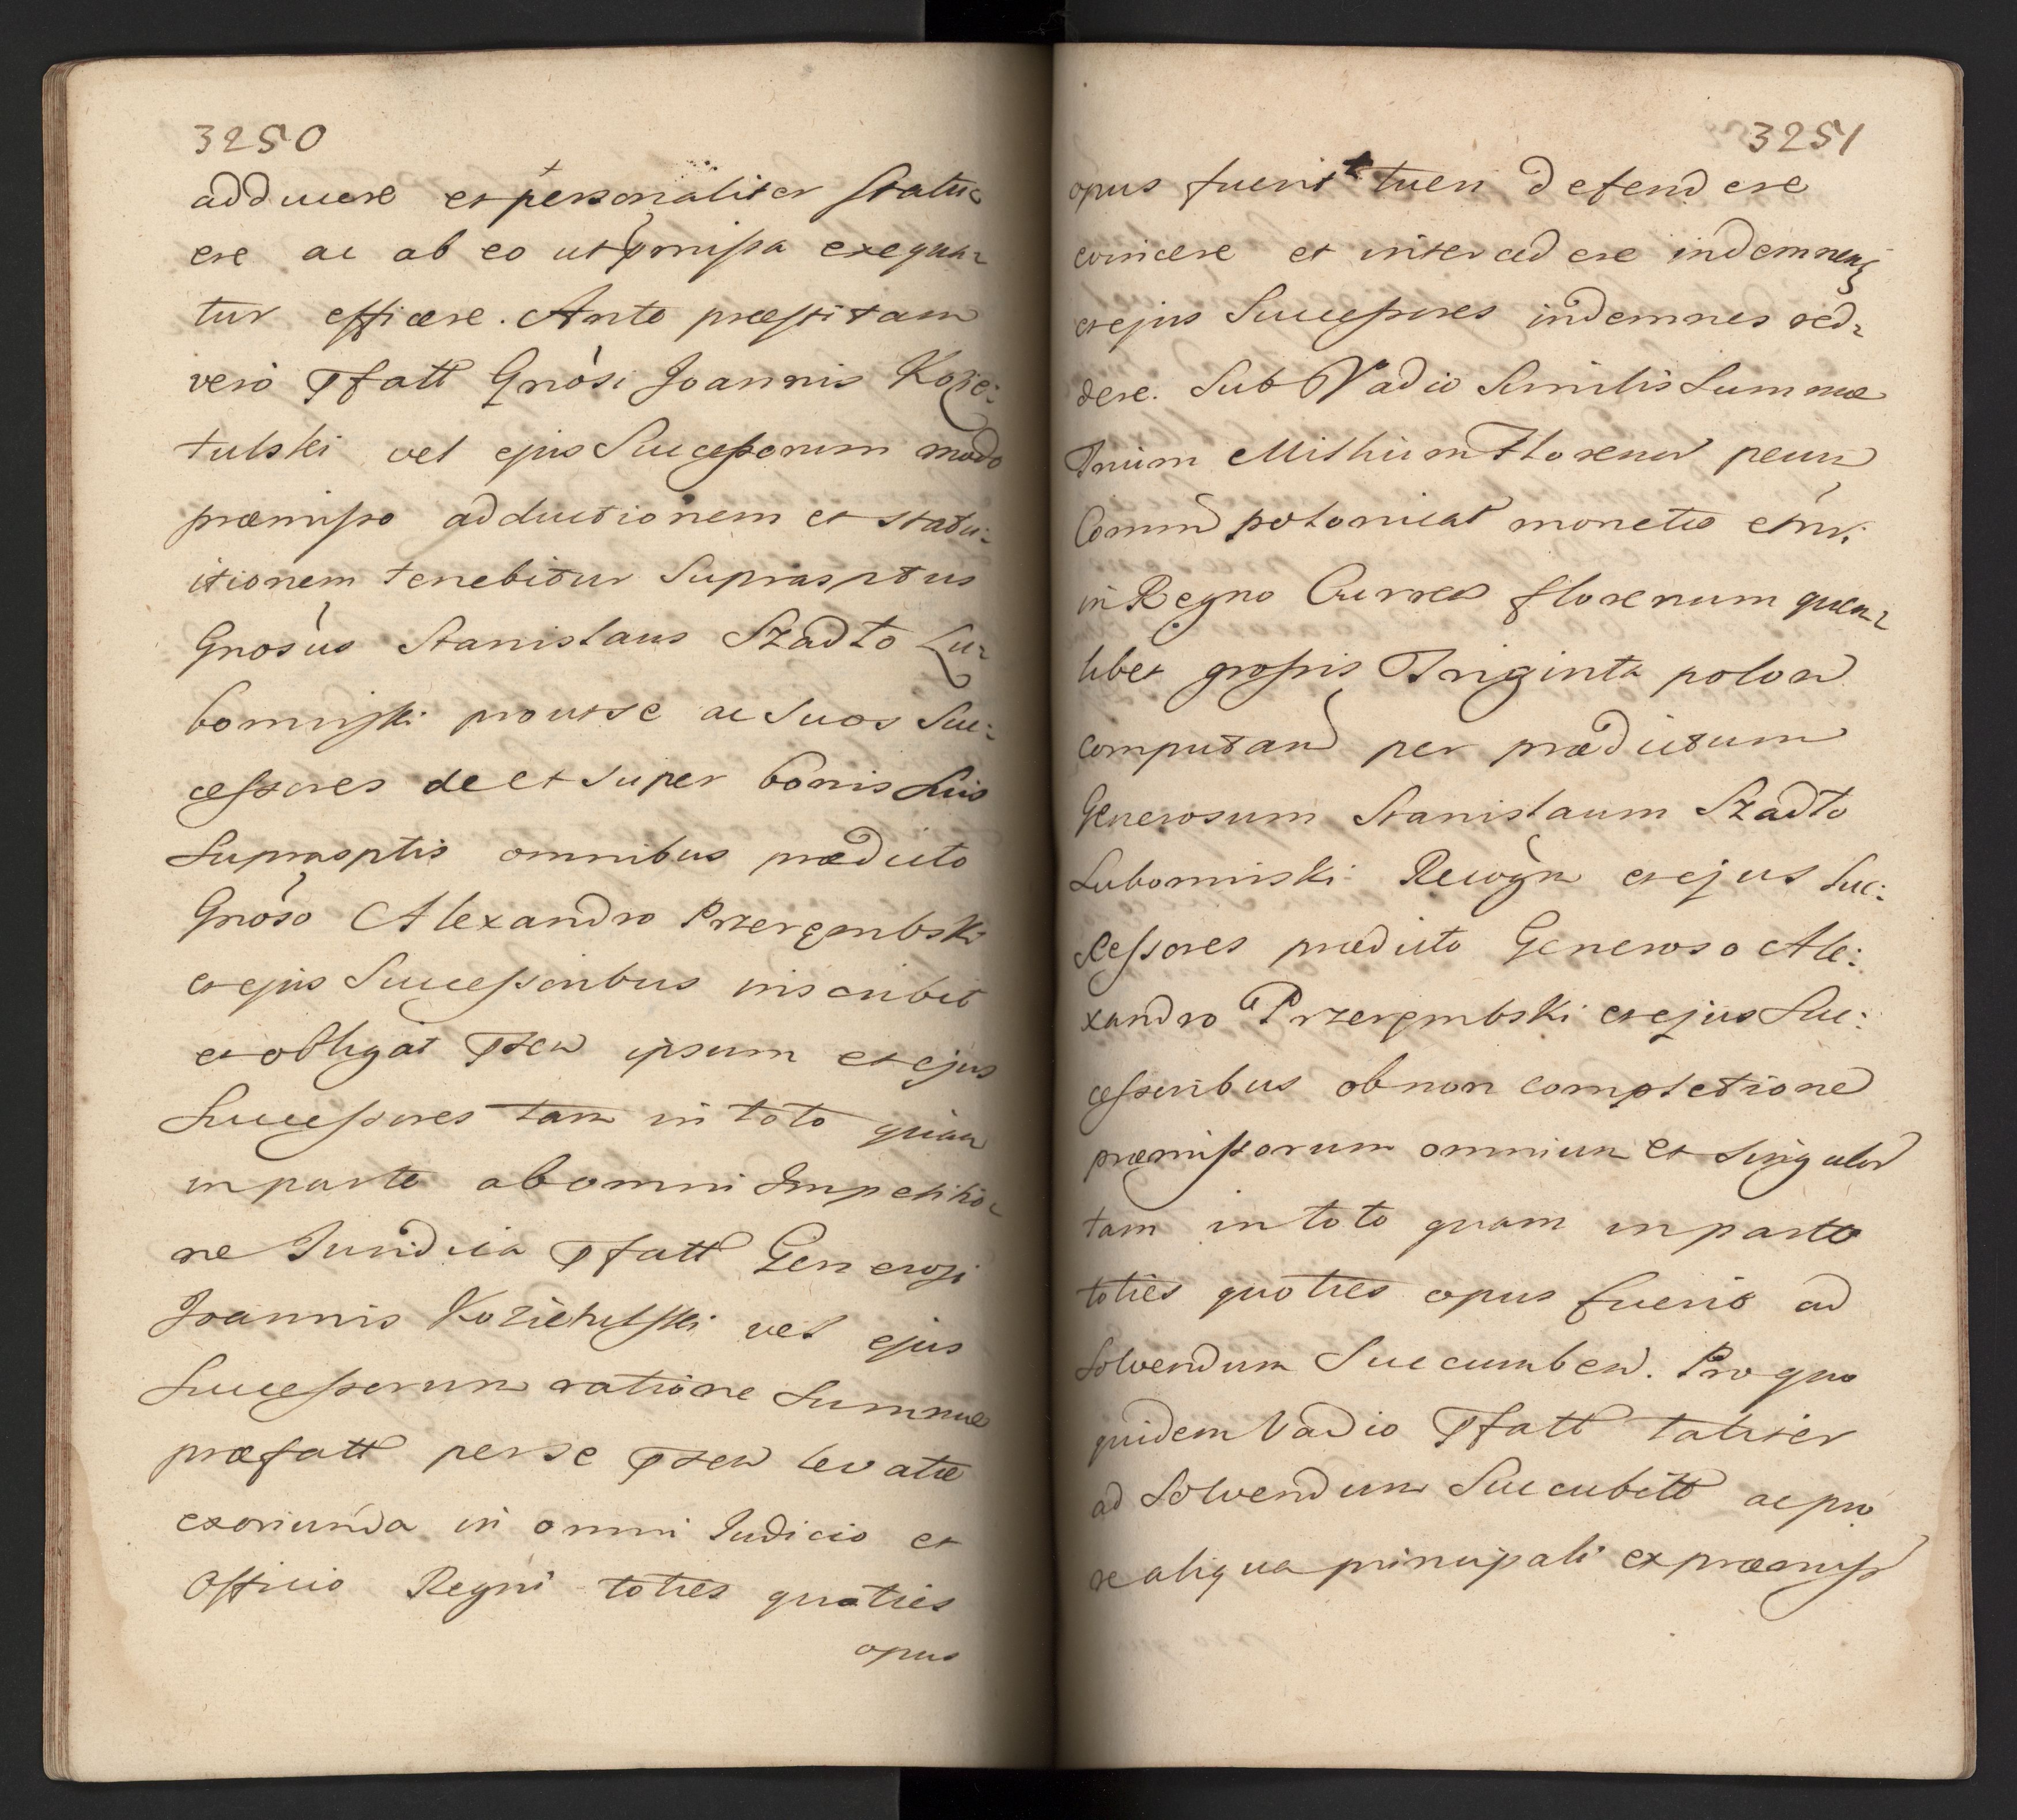 3250
adducere et personaliter statu=
ere ac ab eo ut pmissa exequa=
tur efficere. Ante præstitam
vero Pfatt Gnosi Joannis Kozie=
tulski vel ejus Successorum modo
præmisso adductionem et statu=
itionem tenebitur Suprasptus
Gnosus Stanislaus Szadło Lu=
bomirski prout se ac suos Suc=
cessores de et super bonis suis
Suprasptis omnibus prædicto
Gnoso Alexandro Przerembski
et ejus Successoribus inscribit
et obligat Pten ipsum et ejus
Successores tam in toto quam
in parte ab omni Impetitio=
ne Juridica Pfatt Generosi
Joannis Kozietulski vel ejus
Successorum ratione Summæ
præfatt per se Pten levatæ
exoriunda in omni Judicio et
Officio Regni toties quoties
opus
3251
opus fuerit tueri defendere
evincere et intercedere indemnem
et ejus Successores indemnes red=
dere. Sub Vadio Similis Summæ
Trium Millium Floren pecun
Comm polonical monetæ et nri
in Regno Curren florenum quem=
libet grossis Triginta polon
computand per prædictum
Generosum Stanislaum Szadło
Lubomirski Recogn et ejus Suc=
cessores prædicto Generoso Ale=
xandro Przerembski et ejus Suc=
cessoribus ob non completione
præmissorum omnium et singulor
tam in toto quam in parte
toties quoties opus fuerit ad
Solvendum Succumben. Pro quo
quidem Vadio Pfatt taliter
ad Solvendum Succubitt ac pro
re aliqua principali ex præmiss